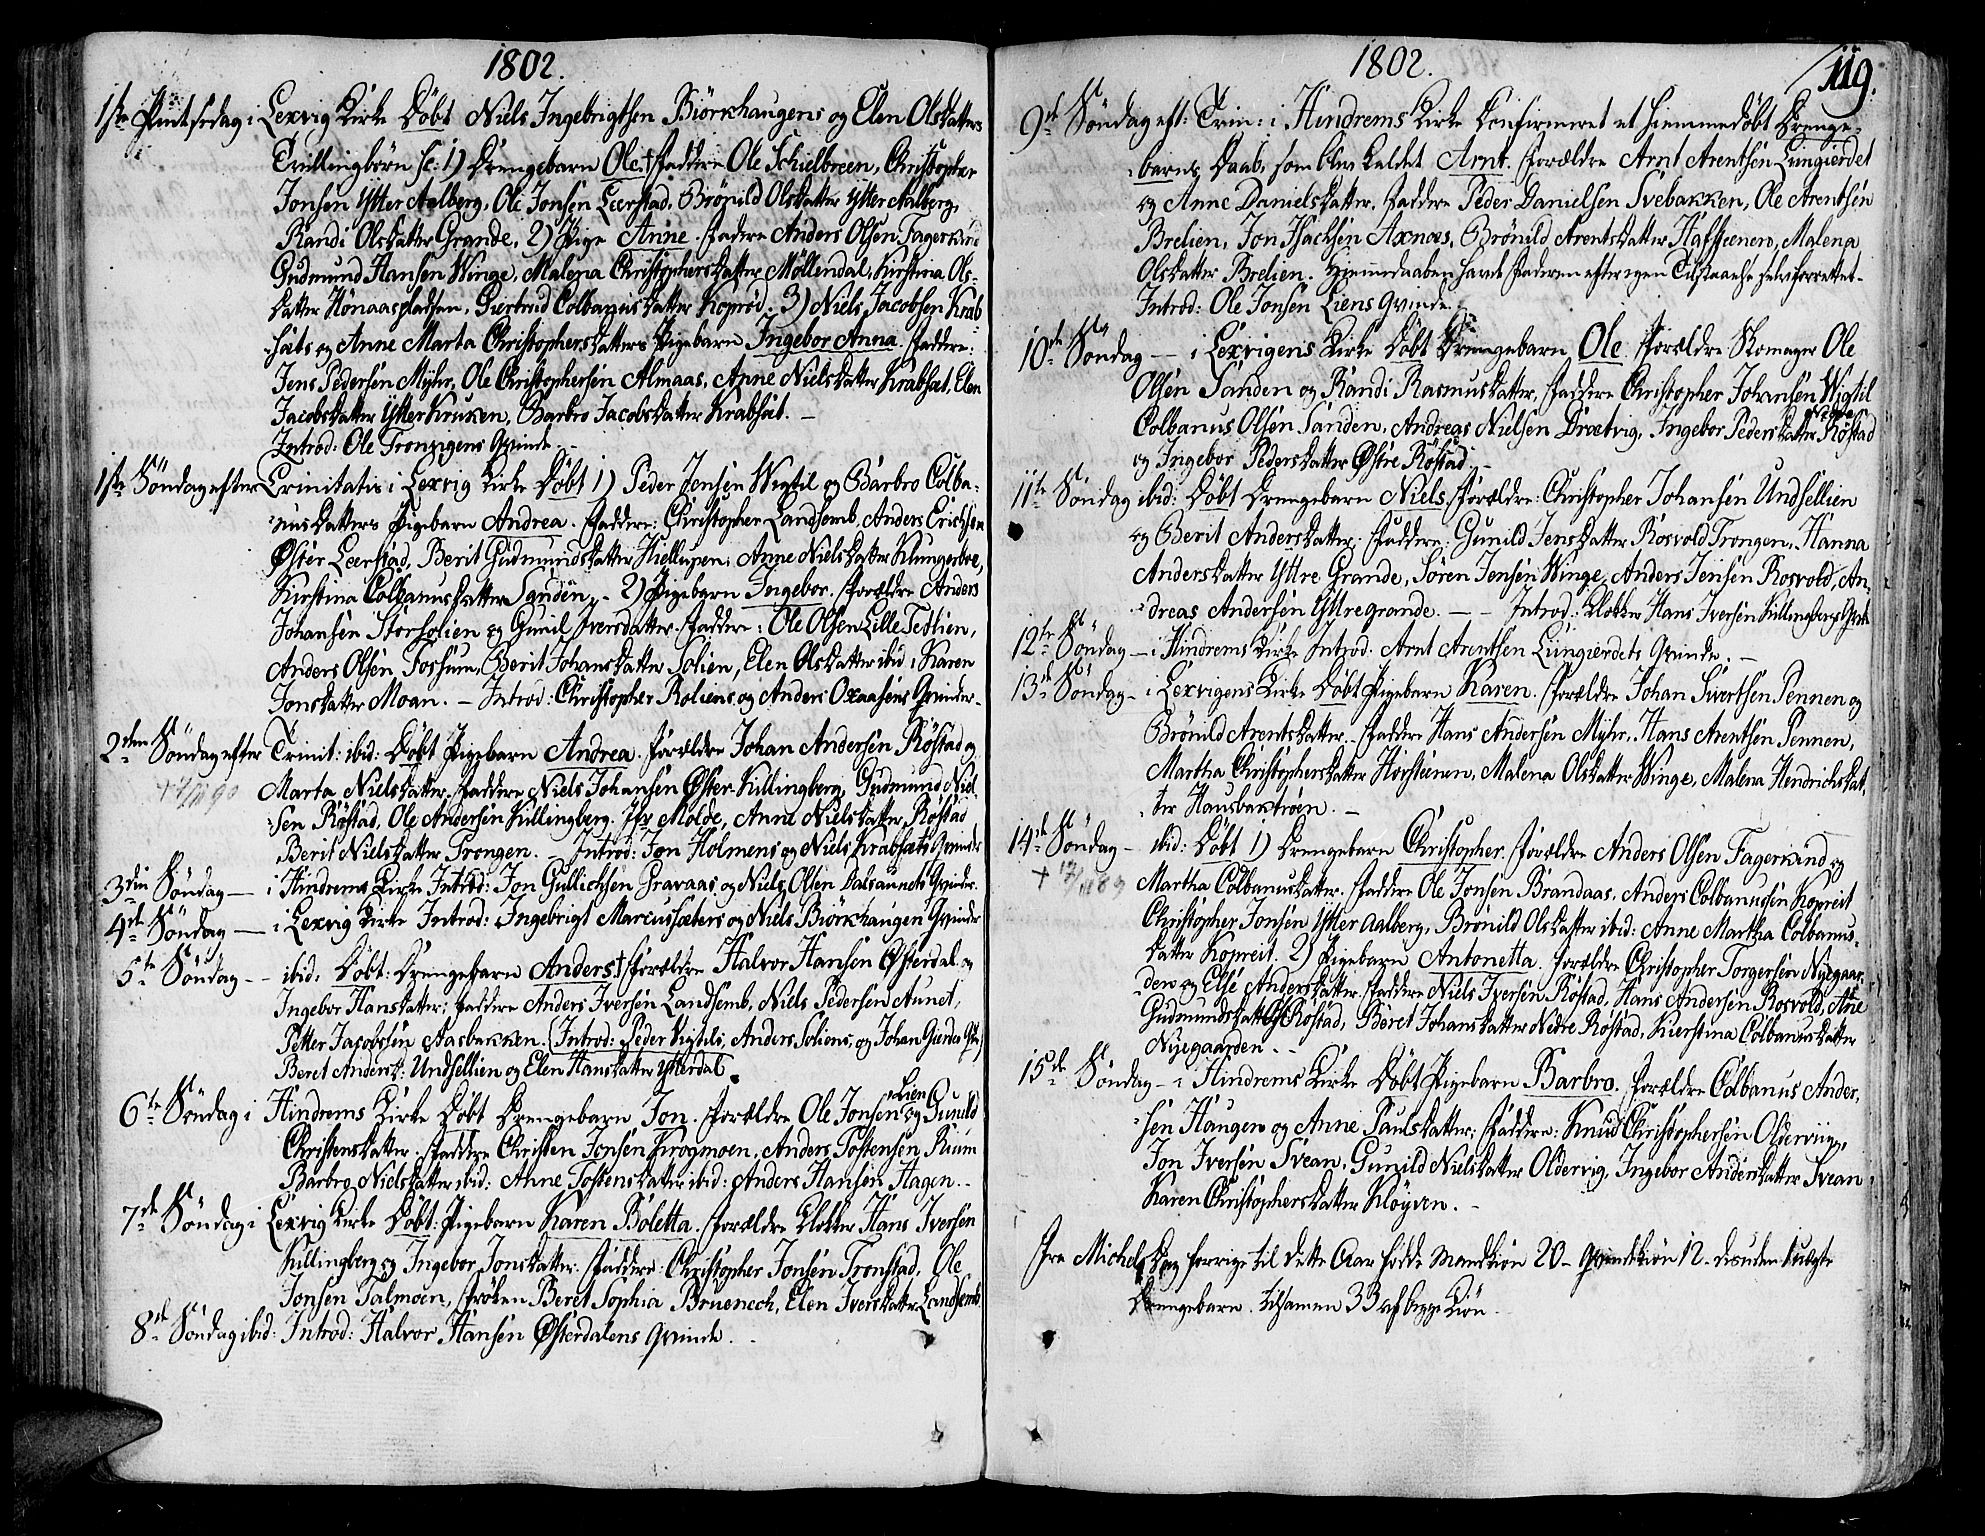 1802.
1ste Pintsedag i Lexvig Kirke Döbt Niels Ingebrigtsen Biörkhaugens og Elen Olsdatters
Tvillingbörn sc: 1) Drengebarn Ole. † Faddere Ole Schielbreen, Christopher
Jonsen Ytter Aalberg, Ole Jonsen Leerstad, Brönild Olsdatter Ytter Aalberg,
Randi Olsdatter Grande, 2) Pige Anne. Faddere Anders Olsen Fagerkind
Gudmund Hansen Winge, Malena Christophersdatter Möllendal, Kirstina Ols-
datter Hönaaspladsen, Gertrud Colbanusdatter Koprod. 3) Niels Jacobsen Krab-
sæts og Anne Marta Christophersdatters Pigebarn Ingebor Anna. Faddere:
Jens Pedersen Myhr, Ole Christophersen Almaas, Anne Nielsdatter Krabsæt, Elen
Jacobsdatter Ytter Kruken, Barbro Jacobsdatter Krabsæt. —
Introd: Ole Trongens Qvinde. —
1ste Söndag efter Trinitatis i Lexvig Kirke Döbt 1) Peder Jensen Wigtil og Barbro Colba-
nusdatters Pigebarn Andrea. Faddere: Christopher Landsemb, Anders Erichsen
Öster Leerstad, Berit Gudmundsdatter Hiellupen, Anne Nielsdatter Klungerboe,
Kirstina Colbanusdatter Sanden. - 2) Pigebarn Ingebor. Forældre Anders
Johansen Storsolien og Gunil Iversdatter. Faddere: Ole Olsen Lille Tedlien,
Anders Olsen Fossum, Berit Johansdatter Solien, Elen Olsdatter ibid, Karen
Jonsdatter Moan. - Introd: Christopher Roliens og Anders Oxaasens Qvinder.
2den Söndag efter Trinit: ibid: Döbt Pigebarn Andrea. Forældre Johan Andersen Röstad og
Marta Nielsdatter. Faddere Niels Johansen Öster Killingberg, Gudmund Niel-
sen Röstad, Ole Andersen Killingberg. Molde, Anne Nielsdatter Röstad
Berit Nielsdatter Trongen. - Introd: Jon Holmens og Niels Krabsæts Qvinder
3die Söndag — i Hindrems Kirke Introd: Jon Gullichsen Gravaas og Niels Olsen Dalsaunets Qvinder.
4de Söndag — i Lexvig Kirke Introd: Ingebrigt Marcussæters og Niels Biörkhaugen Qvinder
5te Söndag - - ibid. Döbt: Drengebarn Anders. † Forældre Halvor Hansen Österdal og
Ingebor Hansdatter; Faddere Anders Iversen Landsemb, Niels Pedersen Aunet,
Petter Jacobsen Aasbakken. (Introd: Peder Vigtils, Anders Soliens, og Johan
Beret Andersd: Undsellien og Elen Hansdatter Ytterdal.
6te Söndag i Hindrems Kirke Döbt Drengebarn Jon. Forældre Ole Jonsen Lien og Gunild
Christensdatter. Faddere Christen Jonsen Krogmoen, Anders Tostensen Ruum
Barbro Nielsdatter ibid: Anne Tostensdatter ibid: Anders Hansen Hagen. -
7de Söndag i Lexvig Kirke Döbt: Pigebarn Karen Boletta. Forældre Klokker Hans Iversen
Killingberg og Ingebor Jonsdatter. Faddere: Christopher Jonsen Tronstad, Ole
Jonsen Salmoen, Fröken Beret Sophia Bruenech, Elen Iversdatter Landsemb.
8de Söndag ibid: Introd: Halvor Hansen Österdalens Qvinde. -
1802.
119.
9de Söndag eft: Trin: i Hindrems Kirke Confirmeret et hiemmedöbt Drenge-
barns Daab, som blev kaldet Arnt. Forældre Arnt Arentsen Lungierdet
og Anne Danielsdatter. Faddere Peder Danielsen Svebakken, Ole Arentsen
Brelien, Jon Isachsen Axnæs, Brönild Arentsdatter Hafsteenen, Malena
Olsdatter Brelien. Hiemmedaaben havde Faderen efter egen Tilstaaelse selv forrettet.
Introd: Ole Jonsen Liens Qvinde.
10de Söndag — i Lexvigens Kirke Döbt Drengebarn Ole. Forældre Skomager Ole
Olsen Sanden og Randi Rasmusdatter, Faddere Christopher Johansen Wigtil
Colbanus Olsen Sanden, Andreas Nielsen Drætvig, Ingebor Pedersdatter Nedre Röstad
og Ingebor Pedersdatter Östre Röstad -
11te Söndag ibid: Döbt Drengebarn Niels. Forældre: Christopher Johansen Undsellien
og Berit Andersdatter. Faddere: Gunild Jensdatter Rosvold Trongen, Hanna
Andersdatter Yttre Grande, Sören Jensen Winge, Anders Jensen Rosvold, An-
dreas Andersen Yttregrande. — - Introd: Klokker Hans Iversen Killingbergs Qvinde
12te Söndag — i Hindrems Kirke Introd: Arnt Arentsen Lungierdets Qvinde. -
13de Söndag - i Lexvigens Kirke Döbt Pigebarn Karen. Forældre Johan Sivertsen Pennen og
Brönild Arentsdatter. - Faddere Hans Andersen Myhr, Hans Arentsen Pennen,
Martha Christophersdatter Hovsteenen, Malena Olsdatter Winge, Malena Hendrichsdat-
ter Hausbaktröen. -
14de Söndag - ibid: Döbt 1) Drengebarn Christopher. Forældre Anders Olsen Fagerkind og
Martha Colbanusdatter. Faddere Ole Jonsen Brandaas, Anders Colbanussen Kopreit
Christopher Jonsen Ytter Aalberg, Brönild Olsdatter ibid: Anne Martha Colbanus-
datter Kopreit. 2) Pigebarn Antonetta. Forældre Christopher Torgersen Nyegaar-
den og Else Andersdatter. Faddere Niels Iversen Röstad, Hans Andersen Rosvold, Ane
Gudmundsdatter Röstad, Beret Johansdatter Nedre Röstad, Kierstina Colbanusdatter
Nyegaarden. - -
15de Söndag - i Hindrems Kirke Döbt Pigebarn Barbro. Forældre Colbanus Ander-
sen Haugen og Anne Paulsdatter; Faddere: Knud Christophersen Oldervig,
Jon Iversen Svean, Gunild Nielsdatter Oldervig, Ingebor Andersdatter Svean
Karen Christophersdatter Klöyven. -
Fra Michels Dag forrige til dette Aar födde Mandkiön 20 - Qvindekiön 12 - desuden 1 uægte
Drengebarn. tilsamen 33 af begge Kiön